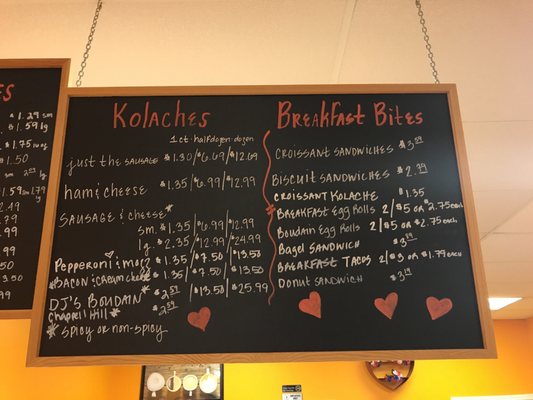 $1.29 sm
$1.59 lg
Kolaches
1ct · half dozen · dozen
just the sausage $1.30/$6.69/$12.69
ham & cheese $1.35/$6.99/$12.99
Sausage & cheese*
sm. $1.35/$6.99/$12.99
lg. $2.35/$12.99/$24.99
Pepperoni & mozz $1.35/$7.50/$13.50
*Bacon & cream cheese $1.35/$7.50/$13.50
DJ's Boudain $2.59/$13.50/$25.99
Chappell Hill * $2.59
*spicy or non-spicy
Breakfast Bites
Croissant Sandwiches $3.59
Biscuit Sandwiches $2.79
Croissant Kolache $1.35
*Breakfast Egg Rolls 2/$5 or $2.75 each
Boudain Egg Rolls 2/$5 or $2.75 each
Bagel Sandwich $3.59
Breakfast Tacos 2/$3 or $1.79 each
Donut Sandwich $3.19